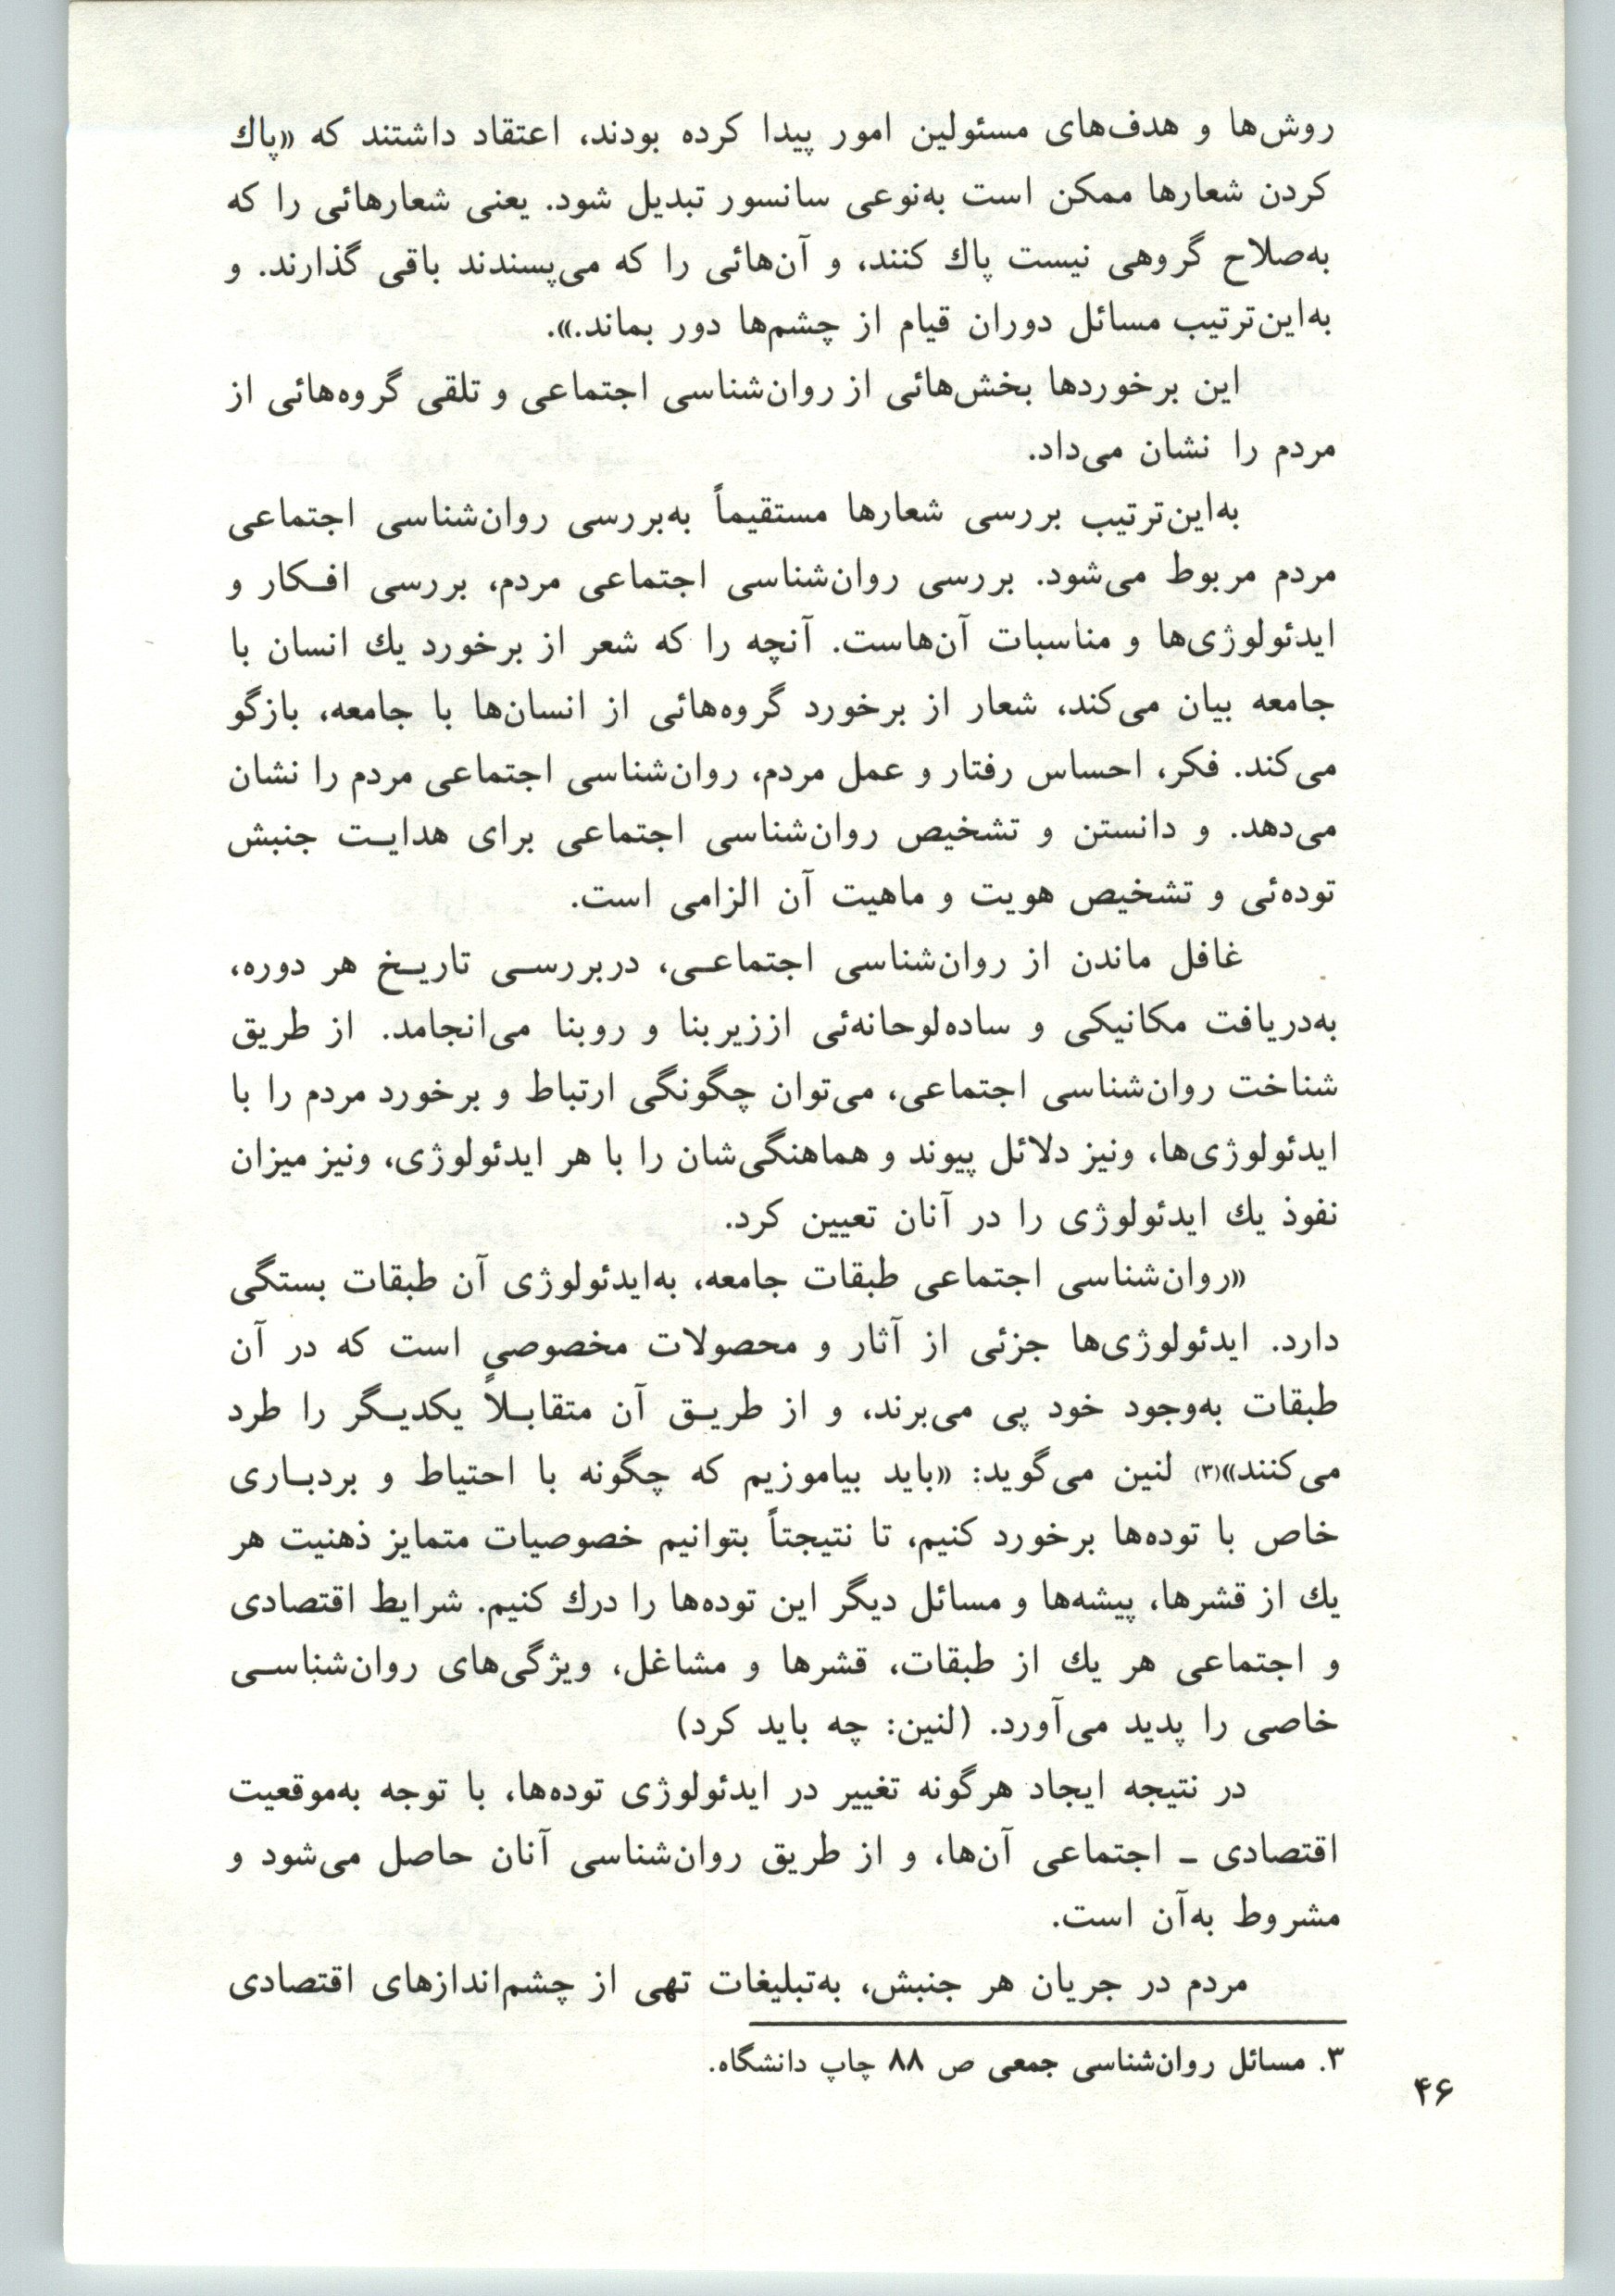 روش‌ها و هدف‌های مسئولین امور پیدا کرده بودند، اعتقاد داشتند که «پاك
کردن شعارها ممکن است به‌نوعی سانسور تبدیل شود. یعنی شعارهائی را که
به‌صلاح گروهی نیست پاك کنند، و آن‌هائی را که می‌پسندند باقی گذارند. و
به‌این‌ترتیب مسائل دوران قیام از چشم‌ها دور بماند.».
این برخوردها بخش‌هائی از روان‌شناسی اجتماعی و تلقی گروه‌هائی از
مردم را نشان می‌داد.
به‌این‌ترتیب بررسی شعارها مستقیماً به‌بررسی روان‌شناسی اجتماعی
مردم مربوط می‌شود. بررسی روان‌شناسی اجتماعی مردم، بررسی افـکار و
ایدئولوژی‌ها و مناسبات آن‌هاست. آنچه را که شعر از برخورد یك انسان با
جامعه بیان می‌کند، شعار از برخورد گروه‌هائی از انسان‌ها با جامعه، بازگو
می‌کند. فکر، احساس رفتار و عمل مردم، روان‌شناسی اجتماعی مردم را نشان
می‌دهد. و دانستن و تشخیص روان‌شناسی اجتماعی برای هدایـت جنبش
توده‌ئی و تشخیص هویت و ماهیت آن الزامی است.
غافل ماندن از روان‌شناسی اجتماعـی، دربررسـی تاریـخ هر دوره،
به‌دریافت مکانیکی و ساده‌لوحانه‌ئی اززیربنا و روبنا می‌انجامد. از طریق
شناخت روان‌شناسی اجتماعی، می‌توان چگونگی ارتباط و برخورد مردم را با
ایدئولوژی‌ها، ونیز دلائل پیوند و هماهنگی‌شان را با هر ایدئولوژی، ونیز میزان
نفوذ یك ایدئولوژی را در آنان تعیین کرد.
«روان‌شناسی اجتماعی طبقات جامعه، به‌ایدئولوژی آن طبقات بستگی
دارد. ایدئولوژی‌ها جزئی از آثار و محصولات مخصوصی است که در آن
طبقات به‌وجود خود پی می‌برند، و از طریـق آن متقابـلاً یکدیـگر را طرد
می‌کنند»(۳) لنین می‌گوید: «باید بیاموزیم که چگونه با احتیاط و بردبـاری
خاص با توده‌ها برخورد کنیم، تا نتیجتاً بتوانیم خصوصیات متمایز ذهنیت هر
یك از قشرها، پیشه‌ها و مسائل دیگر این توده‌ها را درك کنیم. شرایط اقتصادی
و اجتماعی هر یك از طبقات، قشرها و مشاغل، ویژگی‌های روان‌شناسـی
خاصی را پدید می‌آورد. (لنین: چه باید کرد)
در نتیجه ایجاد هرگونه تغییر در ایدئولوژی توده‌ها، با توجه به‌موقعیت
اقتصادی ـ اجتماعی آن‌ها، و از طریق روان‌شناسی آنان حاصل می‌شود و
مشروط به‌آن است.
مردم در جریان هر جنبش، به‌تبلیغات تهی از چشم‌اندازهای اقتصادی
۳. مسائل روان‌شناسی جمعی ص ۸۸ چاپ دانشگاه.
۴۶